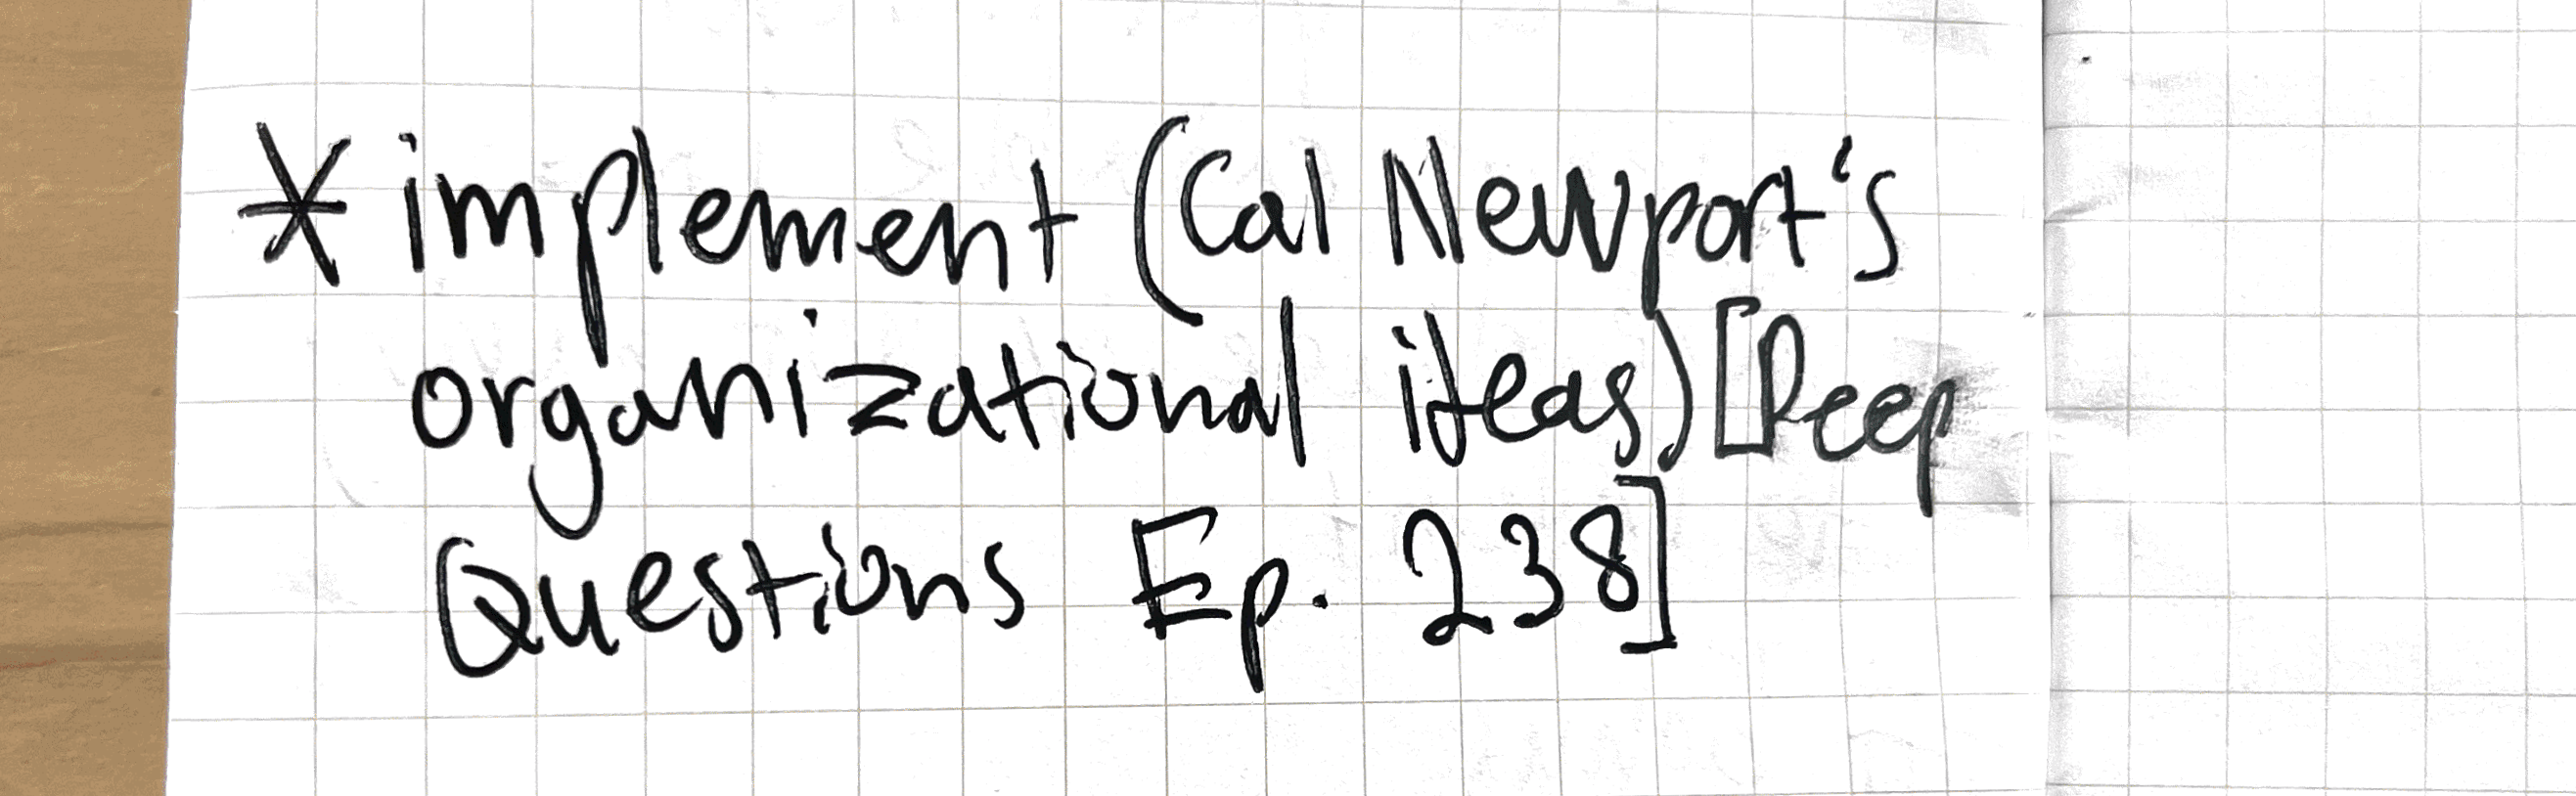 * implement (Cal Newport's
organizational ideas) [Deep
Questions Ep. 238]